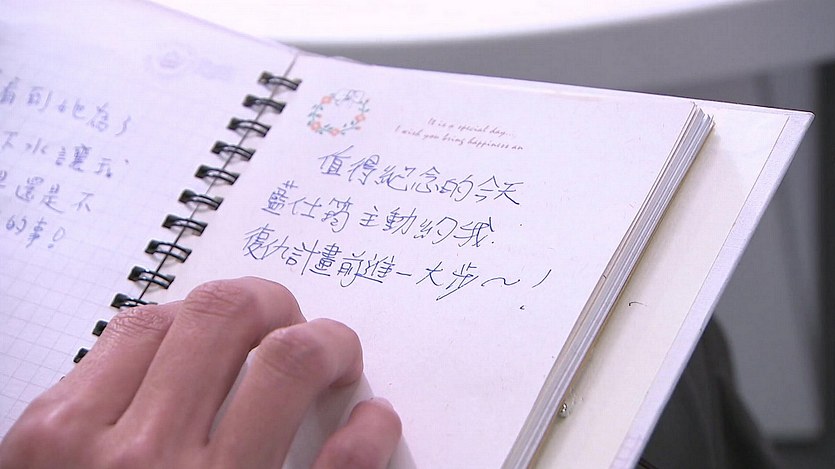 看到她為了
下水讓我
還是不
的事!
It is a special day...
I wish you bring happiness an
值得紀念的今天
藍仕筠主動約我
復仇計畫前進一大步～!